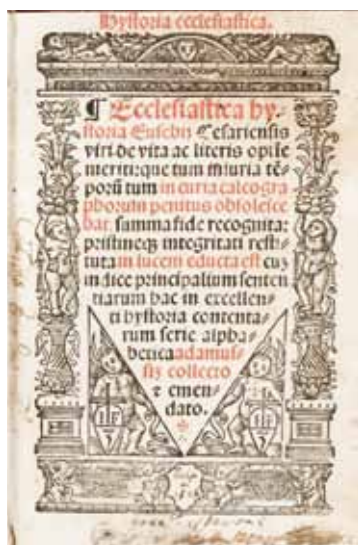 Hystoria ecclesiastica.
¶ Ecclesiastica hy-
storia Eusebij Cesariensis
viri de vita ac literis optime
meriti: que tum iniuria tē-
porū tum in curia calcogra
phorum penitus obsolesce
bat summa fide recognita:
pristineqȝ integritati resti-
tuta in lucem educta est cuȝ
indice principalium senten
tiarum hac in excellen-
ti hystoria contenta-
rum serie alpha-
betica adamus-
sim collecto
⁊ emen-
dato.
I F
I F